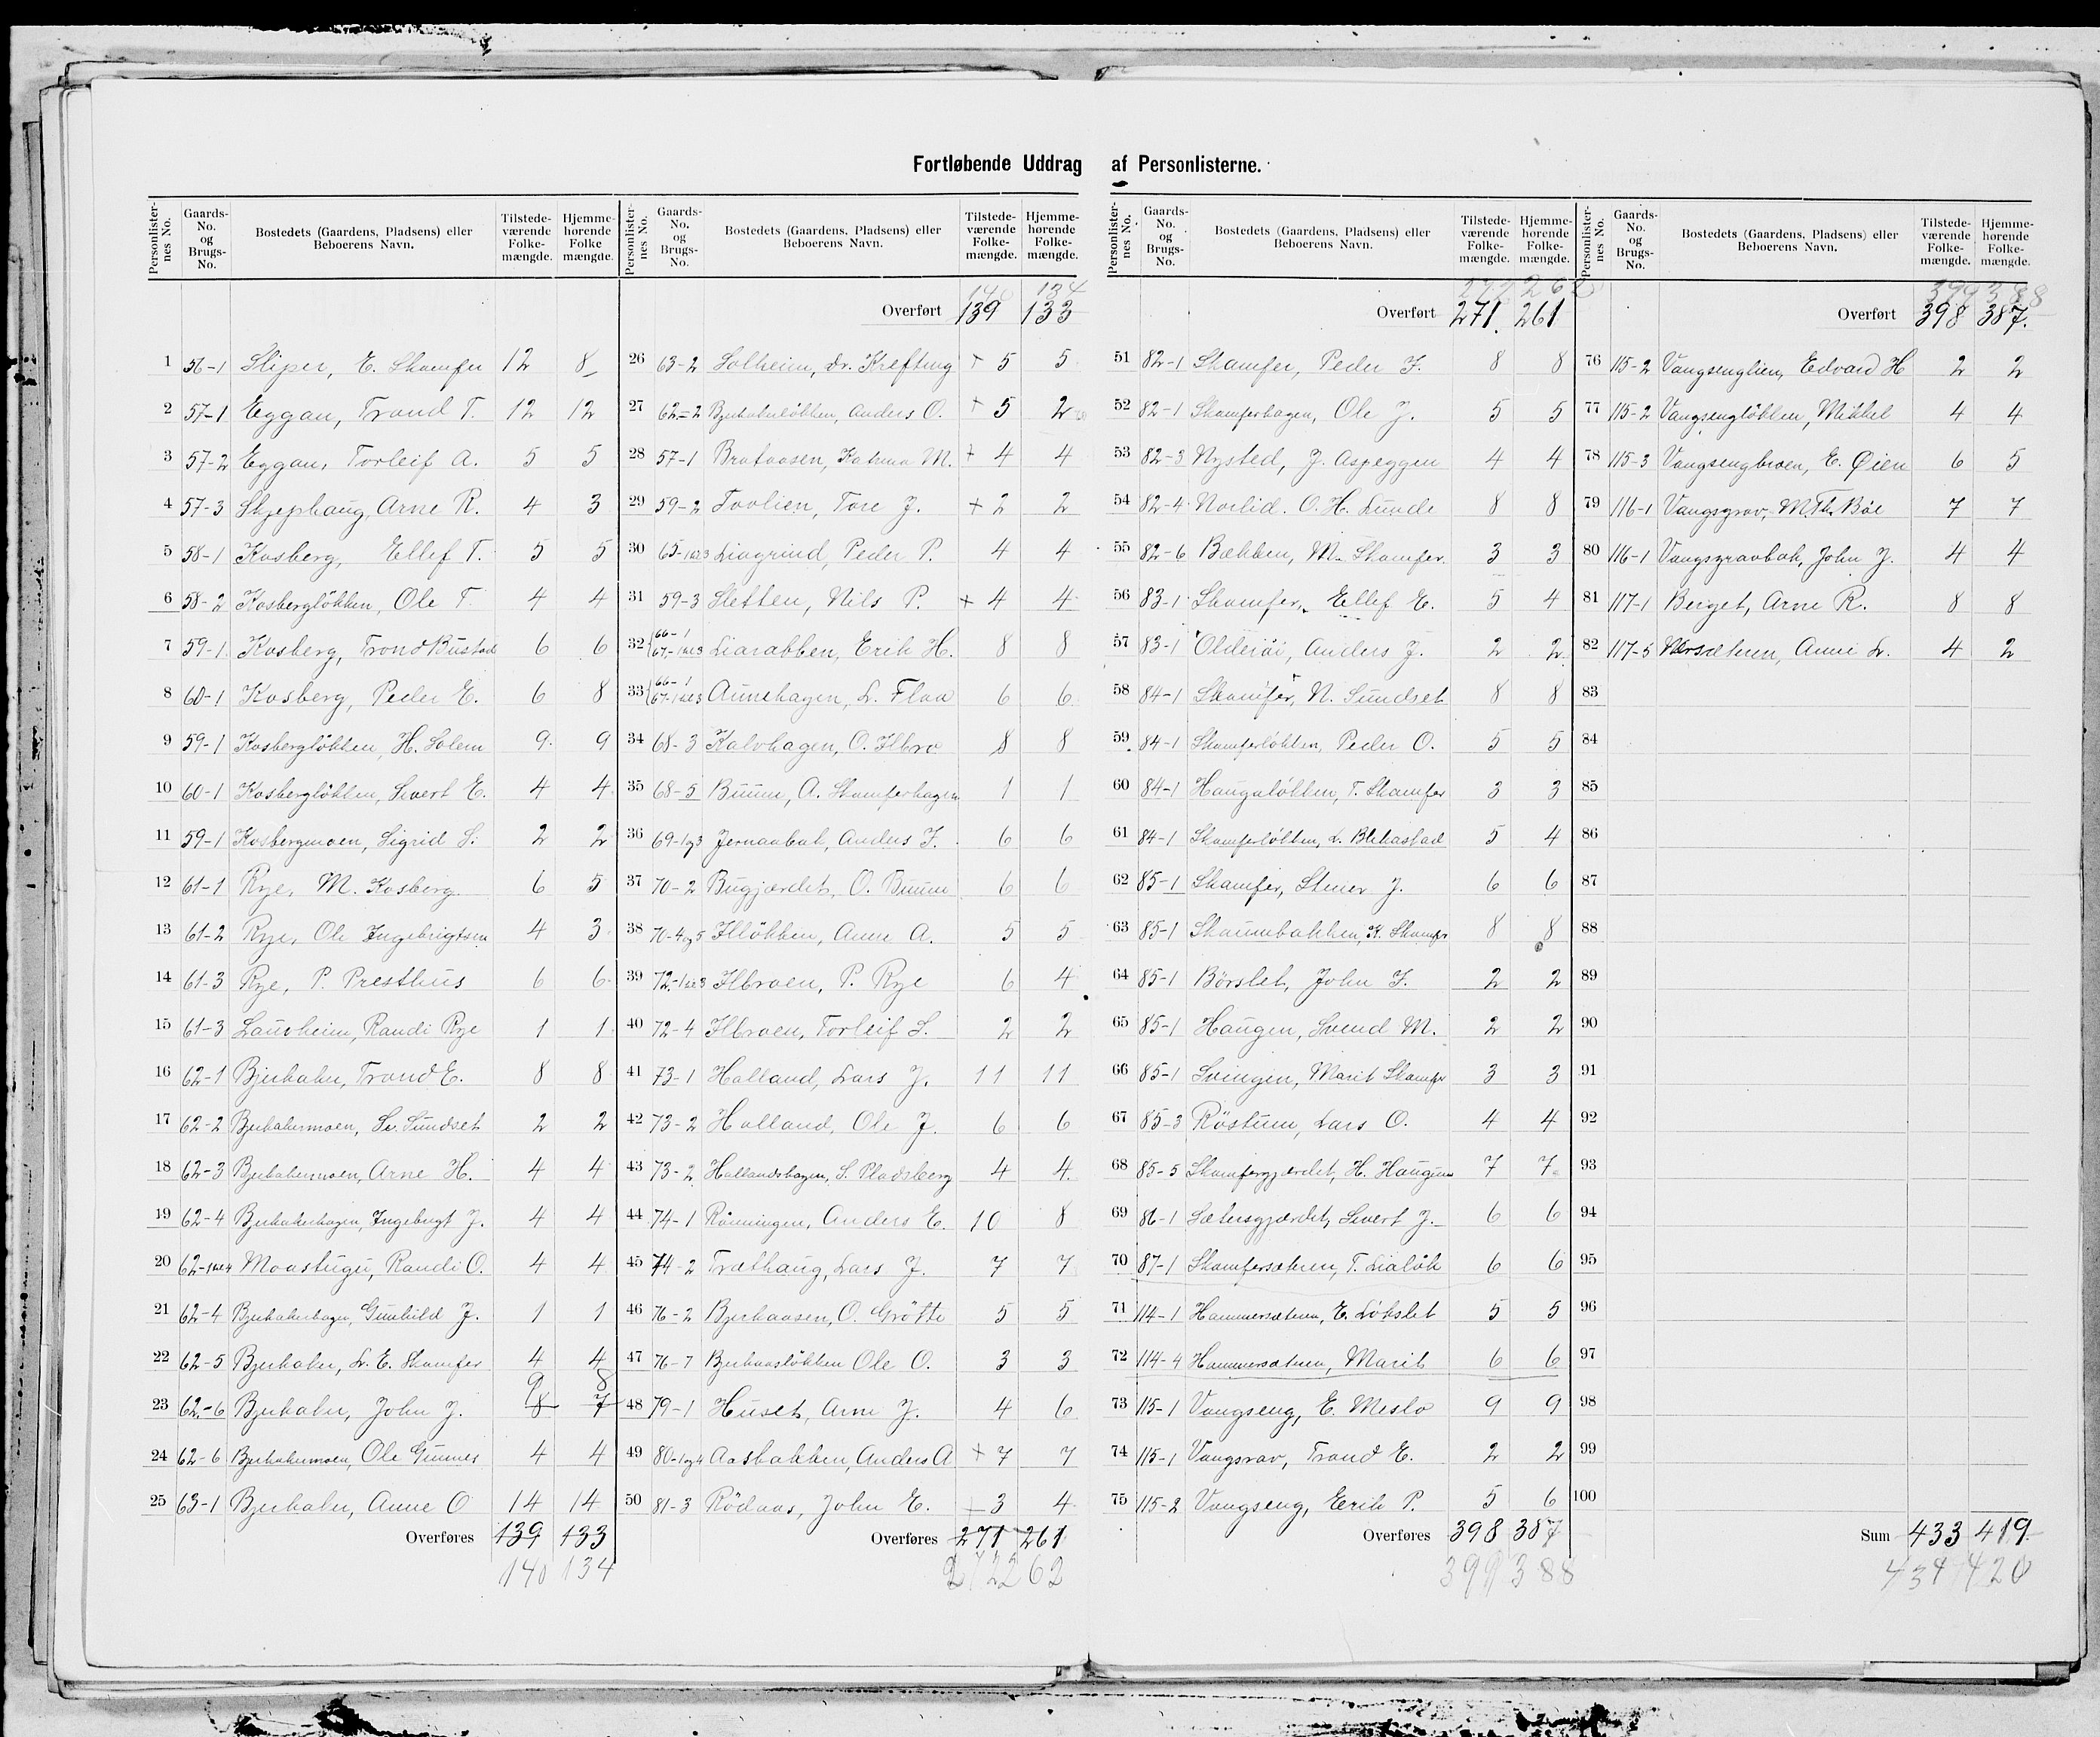 Fortløbende Uddrag af Personlisterne.
Personlisternes No. Gaards-No. og Brugs-No. Bostedets (Gaardens, Pladsens) eller Beboerens Navn. Tilstedeværende Folkemængde. Hjemmehørende Folkemængde.
1 56-1 Sliper, E. Skamfer 12 8
2 57-1 Eggan, Trond T. 12 12
3 57-2 Eggan, Torleif A. 5 5
4 57-3 Skjephaug, Arne R. 4 3
5 58-1 Kosberg, Ellef T. 5 5
6 58-2 Kosbergløkken, Ole T. 4 4
7 59-1 Kosberg, Trond Bustad 6 6
8 60-1 Kosberg, Peder E. 6 8
9 59-1 Kosbergløkken, H. Solem 9 9
10 60-1 Kosbergløkken, Sivert E. 4 4
11 59-1 Kosbergmoen, Sigrid S. 2 2
12 61-1 Rye, M. Kosberg 6 5
13 61-2 Rye, Ole Ingebrigtsen 4 3
14 61-3 Rye, P. Presthus 6 6
15 61-3 Lauvheim, Randi Rye 1 1
16 62-1 Bjerkaker, Trond E. 8 8
17 62-2 Bjerkakermoen, Sv. Sundset 2 2
18 62-3 Bjerkakermoen, Arne H. 4 4
19 62-4 Bjerkakerhagen, Ingebrigt J. 4 4
20 62-1 4 Moastugu, Randi O. 4 4
21 62-4 Bjerkakerhagen, Gunhild J. 1 1
22 62-5 Bjerkaker, L. E. Skamfer 4 4
9 8
23 62-6 Bjerkaker, John J. 8 7
24 62-6 Bjerkakermoen, Ole Gunnes 4 4
25 63-1 Bjerkaker, Anne O 14 14
Overføres 139 133
140 134
140 134
Overført 139 133
26 63-2 Solheim, dr. Krefting + 5 5
27 62-2 Bjerkakerløkken, Anders O. + 5 2
28 57-1 Brataasen, M. + 4 4
29 59-2 Toolien, Tore J. + 2 2
30 65-1 3 Liagrind, Peder P. 4 4
31 59-3 Sletten, Nils P. + 4 4
32 66-1 67-1 3 Liarabben, Erik H. 8 8
33 66-1 67-1 3 Aunehagen, L. Flaa 6 6
34 68-3 Kalvhagen, O. Ilbro 8 8
35 68-5 Buum, A. Skamferhagen 1 1
36 69-1og3 Jernaabak, Anders J. 6 6
37 70-2 Bugjærdet, O. Buum 6 6
38 70-4og5 Illøkken, Anne A. 5 5
39 72-1 3 Ilbroen, P. Rye 6 4
40 72-4 Ilbroen, Torleif S. 2 2
41 73-1 Halland, Lars J. 11 11
42 73-2 Halland, Ole J. 6 6
43 73-2 Hallandshagen, S. Pladsberg 4 4
44 74-1 Rønningen, Anders E. 10 8
45 74-2 Træthaug, Lars J. 7 7
46 76-2 Bjerkaasen, O. Grøtte 5 5
47 76-7 Bjerkaasløkken Ole O. 3 3
48 79-1 Huset, Arne J. 4 6
49 80-1og4 Aasbakken, Anders A + 7 7
50 81-3 Rødaas, John E. 3 4
Overføres 271 261
272 262
272 262
Overført 271 261
51 82-1 Skamfer, Peder J. 8 8
52 82-1 Skamferhagen, Ole J. 5 5
53 82-3 Nysted, J. Aspeggen 4 4
54 82-4 Norlid. O. H. Lunde 8 8
55 82-6 Bækken, M. Skamfer 3 3
56 83-1 Skamfer, Ellef E. 5 4
57 83-1 Olderøi, Anders J. 2 2
58 84-1 Skamfer, N. Sundset 8 8
59 84-1 Skamferløkken, Peder O. 5 5
60 84-1 Haugaløkken, T. Skamfer 3 3
61 84-1 Skamferløkken, L. Blekastad 5 4
62 85-1 Skamfer, Steier J. 6 6
63 85-1 Skaumbakken, K. Skamfer 8 8
64 85-1 Børslet, John J. 2 2
65 85-1 Haugen, Svend M. 2 2
66 85-1 Svingen, Marit Skamfer 3 3
67 85-3 Røstum, Lars O. 4 4
68 85-5 Skamfergjærdet, H. Haugum 7 7
69 86-1 Sætersgjærdet, Sivert J. 6 6
70 87-1 Skamfersæteren, T. Lialøk 6 6
71 114-1 Hammersæteren, E. Løkslet 5 5
72 114-4 Hammersæteren, Marit 6 6
73 115-1 Vangseng, E. Meslo 9 9
74 115-1 Vangsrav, Trond E. 2 2
75 115-2 Vangseng, Eerik P. 5 6
Overføres 398 387
399 388
399 388
Overført 398 387.
76 115-2 Vangsenglien, Edvard H 2 2
77 115-2 Vangsengløkken, Mikkel 4 4
78 115-3 Vangsengbroen, E. Øien 6 5
79 116-1 Vangsgrav, M. Th. Bøe 7 7
80 116-1 Vangsgravbak, John J. 4 4
81 117-1 Berget, Arne R. 8 8
82 117-5 Anne L. 4 2
83
84
85
86
87
88
89
90
91
92
93
94
95
96
97
98
99
100
Sum 433 419
434 420